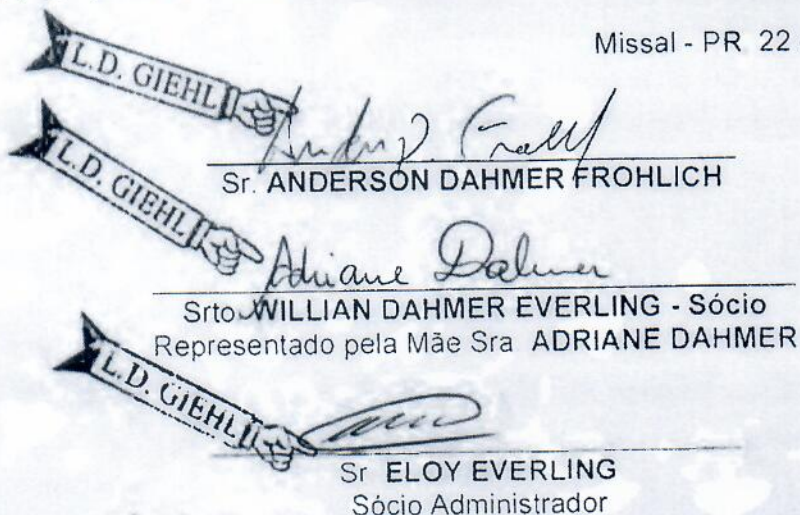 Missal - PR 22
L.D. GIEHL
Sr. ANDERSON DAHMER FROHLICH
L.D. GIEHL
Adriane Dahmer
Srto. WILLIAN DAHMER EVERLING - Sócio
Representado pela Mãe Sra ADRIANE DAHMER
L.D. GIEHL
Sr ELOY EVERLING
Sócio Administrador